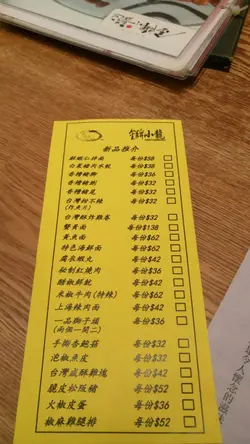 金牌小龍
新品推介
鮮蝦仁拌面 每份$58
白菜豬肉水餃 每份$38
香糟豬脷 每份$32
香糟豬尾 每份$32
台灣甜不辣 每份$32
(炸魚片)
台灣酥炸雞卷 每份$32
蟹黃面 每份$138
黃魚面 每份$62
特色海鮮面 每份$62
腐衣蝦丸 每份$42
秘制紅燒肉 每份$36
醋椒鮮魷 每份$42
米椒牛肉(特辣) 每份$62
上海辣肉面 每份$42
一品獅子頭 每份$36
(兩個一開二)
手撕杏鮑菇 每份$32
泡椒魚皮 每份$42
台灣咸酥雞塊 每份$42
脆皮松阪豬 每份$52
火椒皮蛋 每份$36
椒麻雞腿排 每份$52